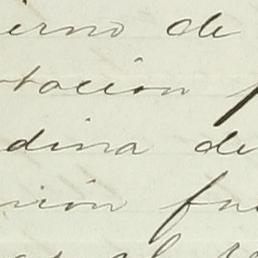 ierno de
tación p
dina de
nión fu